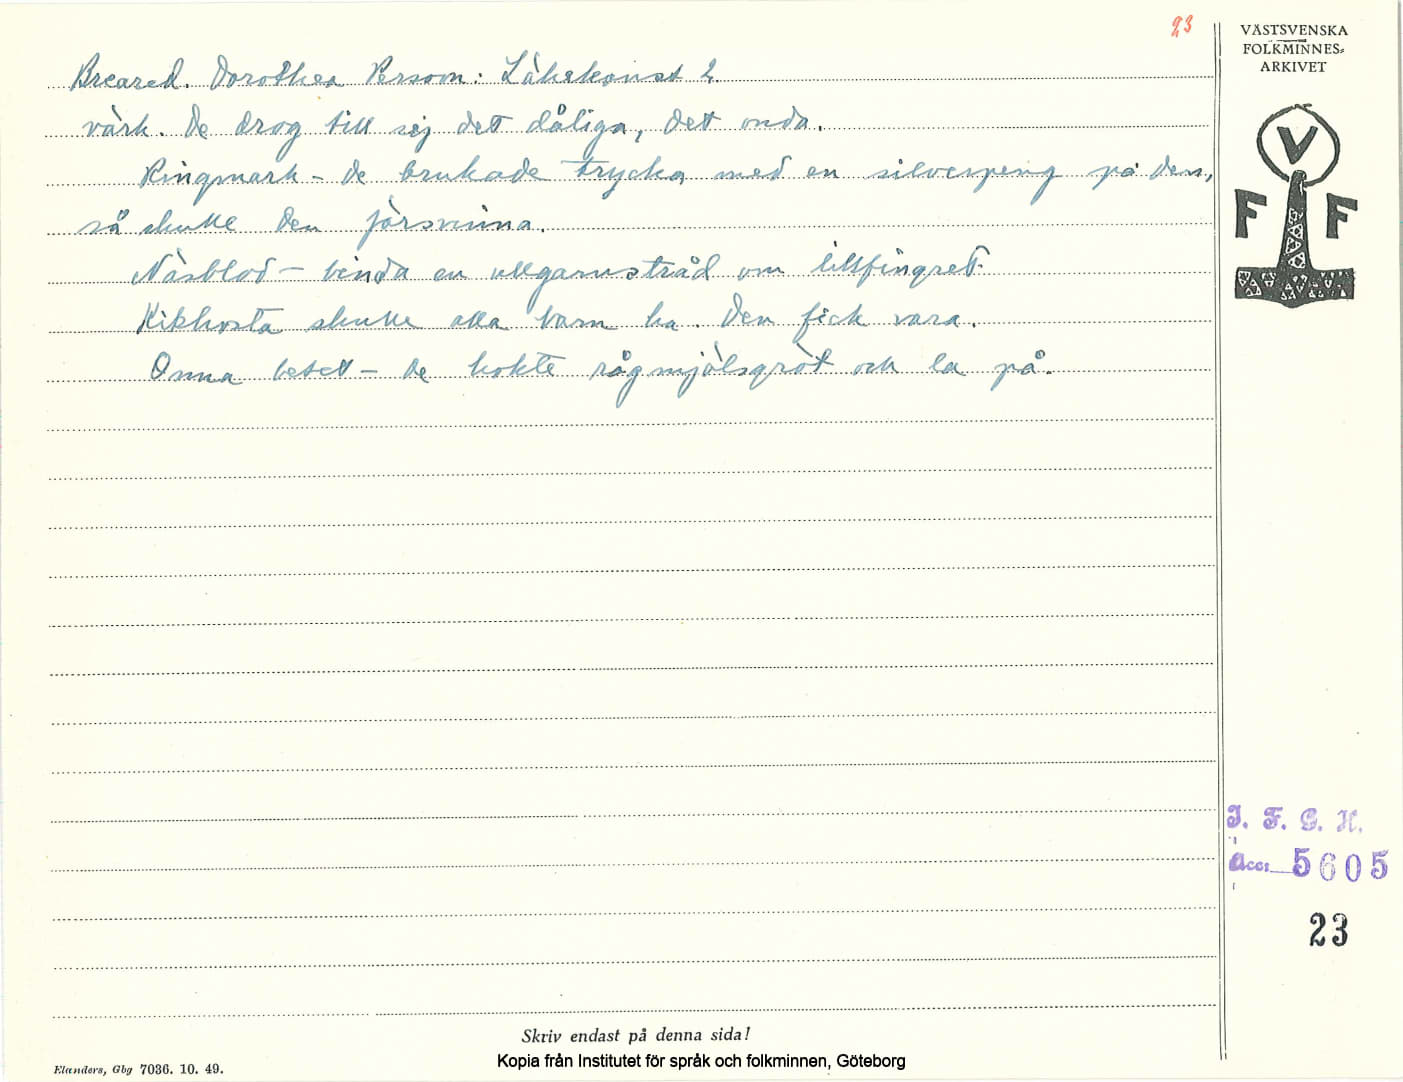 23
VÄSTSVENSKA
FOLKMINNES-
ARKIVET
V
F F
Breared. Dorothea Persson: Läkekonst 2.
värk. De drog till sej det dåliga, det onda.
Ringmark – de brukade trycka med en silverpeng på den,
så skulle den försvinna.
Näsblod – binda en ullgarnstråd om lillfingret.
Kikhosta skulle alla barn ha. Den fick vara.
Onna betet – de kokte rågmjölsgröt och la på.
I. F. G. H.
Acc: 5605
23
Skriv endast på denna sida!
Elanders, Gbg 7036. 10. 49.
Kopia från Institutet för språk och folkminnen, Göteborg